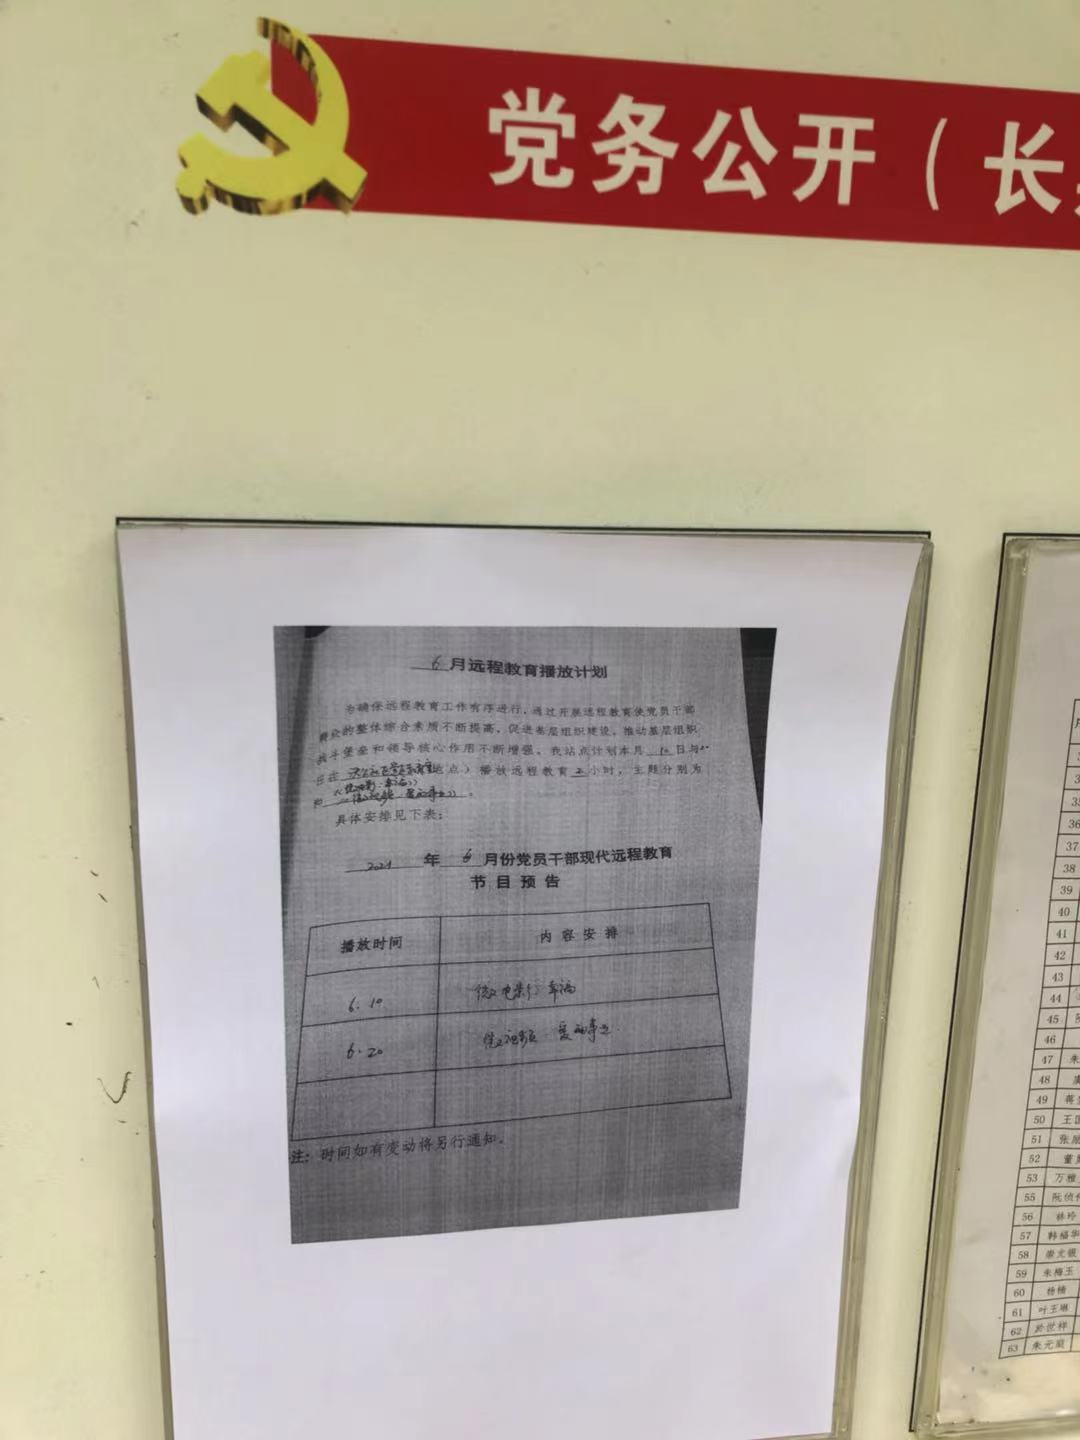 党务公开（长
6月远程教育播放计划
为确保远程教育工作有序进行，通过开展远程教育使党员干部
群众的整体综合素质不断提高，促进基层组织建设，推动基层组织
战斗堡垒和领导核心作用不断增强，我站点计划本月10日与20
日在 地点）播放远程教育2小时，主题分别为
和
具体安排见下表：
2021年6月份党员干部现代远程教育
节目预告
播放时间 内容安排
6.10 微电影：幸福
6.20 微视频
注：时间如有变动将另行通知。
月
3
35
36
37
38
39
40
41
42
43
44
45
46
47 朱
48
49 蒋
50 王
51 张
52 董
53 万雅
55 阮侦
56 林玲
57 韩福华
58 崇光银
59 朱梅玉
60 杨楠
61 叶玉琳
62 於世祥
63 朱元庭